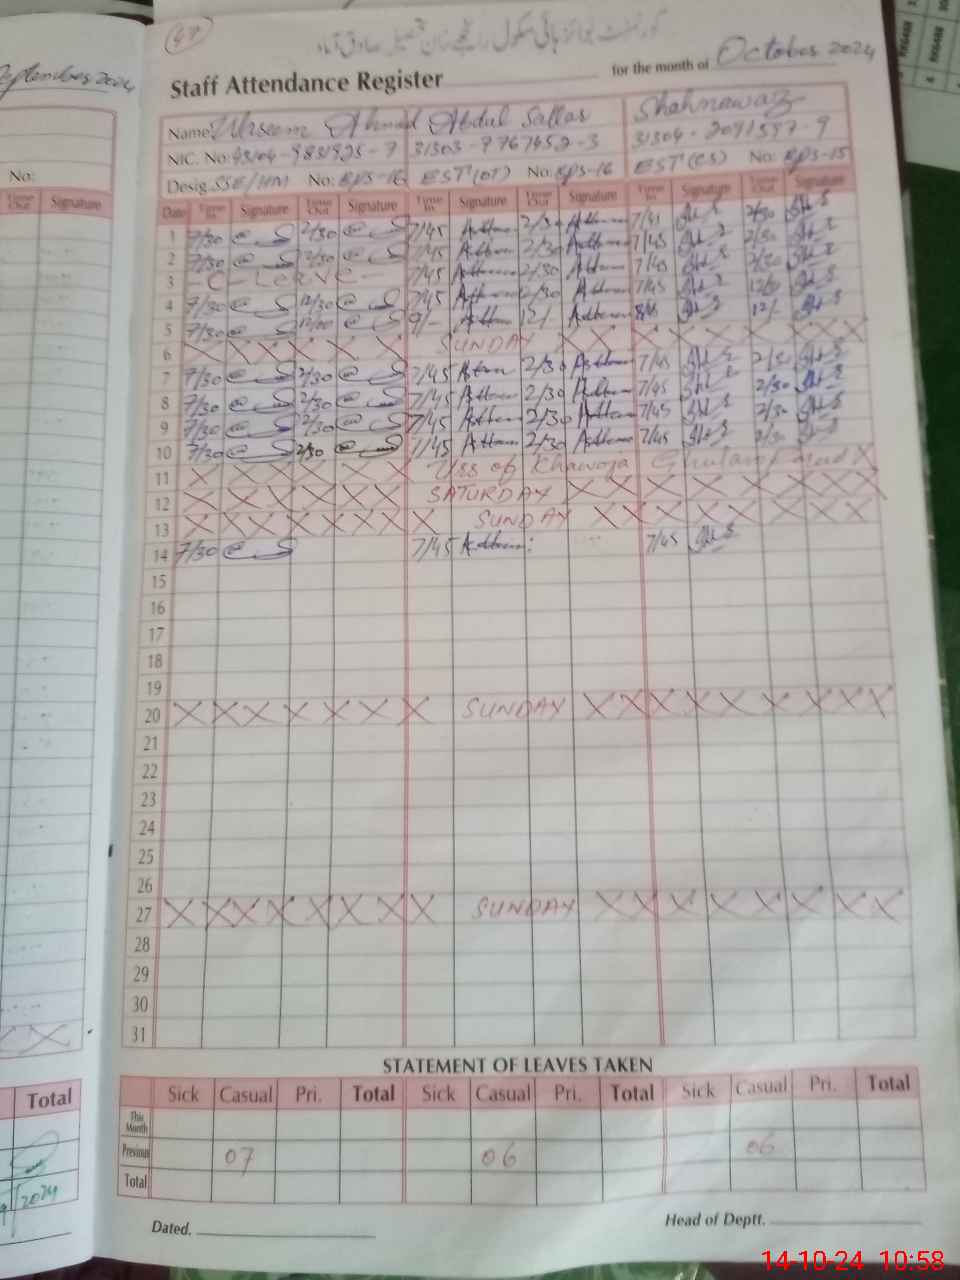 September 2024
No:
Time In Signature
Total
2024
47
گورنمنٹ بوائز ہائی سکول تحصیل صادق آباد
Staff Attendance Register for the month of October 2024
Name Waseem Ahmad Abdul Sattar Shahnawaz
NIC. No: 31303-9767452-3 31304-2091597-9
Desig. SSE/HM No: BPS-16 EST (OT) No: BPS-16 EST (CS) No: BPS-15
Date Time In Signature Time Out Signature Time In Signature Time Out Signature Time In Signature Time Out Signature
1 7/30 2/30 7/45 2/30 7/45 2/30
2 7/30 2/30 7/45 2/30 7/45 2/30
3 - C - Leave - 7/45 2/30 7/45 2/30
4 7/30 12/30 7/45 2/30 7/45 12/30
5 7/30 12/00 9/- 12/ 12/-
6 X X X X X X SUNDAY X X X X X X X X X
7 7/30 2/30 7/45 2/30 7/45 2/30
8 7/30 2/30 7/45 2/30 7/45 2/30
9 7/30 2/30 7/45 2/30 7/45 2/30
10 7/30 2/30 7/45 2/30 7/45 2/30
11 X X X X X Urs of Khawaja Ghulam Farid X
12 X X X X X X SATURDAY X X X X X X X X
13 X X X X X X X SUNDAY X X X X X X X X
14 7/30 7/45 7/45
15
16
17
18
19
20 X X X X X X X SUNDAY X X X X X X X X
21
22
23
24
25
26
27 X X X X X X X X SUNDAY X X X X X X X X
28
29
30
31
STATEMENT OF LEAVES TAKEN
Sick Casual Pri. Total Sick Casual Pri. Total Sick Casual Pri. Total
This Month
Previous 07 06 06
Total
Dated. Head of Deptt.
14-10-24 10:58